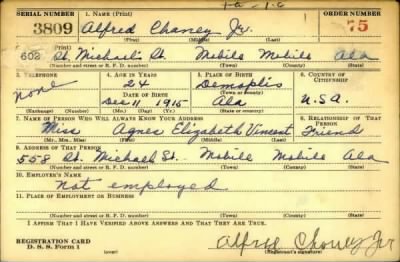 SERIAL NUMBER 1. NAME (Print) ORDER NUMBER
3809 Alfred Chaney Jr. 75
(First) (Middle) (Last)
2. ADDRESS (Print)
602 St. Michael St. Mobile Mobile Ala
(Number and street or R. F. D. number) (Town) (County) (State)
3. TELEPHONE 4. AGE IN YEARS 5. PLACE OF BIRTH 6. COUNTRY OF CITIZENSHIP
None 24 Demoplis
DATE OF BIRTH (Town or county)
Dec 11 1915 Ala U.S.A.
(Exchange) (Number) (Mo.) (Day) (Yr.) (State or country)
7. NAME OF PERSON WHO WILL ALWAYS KNOW YOUR ADDRESS 8. RELATIONSHIP OF THAT PERSON
Miss Agnes Elizabeth Vincent Friend
(Mr., Mrs., Miss) (First) (Middle) (Last)
9. ADDRESS OF THAT PERSON
558 St. Michael St. Mobile Mobile Ala
(Number and street or R. F. D. number) (Town) (County) (State)
10. EMPLOYER'S NAME
Not employed
11. PLACE OF EMPLOYMENT OR BUSINESS
(Number and street or R. F. D. number) (Town) (County) (State)
I AFFIRM THAT I HAVE VERIFIED ABOVE ANSWERS AND THAT THEY ARE TRUE.
REGISTRATION CARD
D. S. S. Form 1 (over) Alfred Chaney Jr
(Registrant's signature)